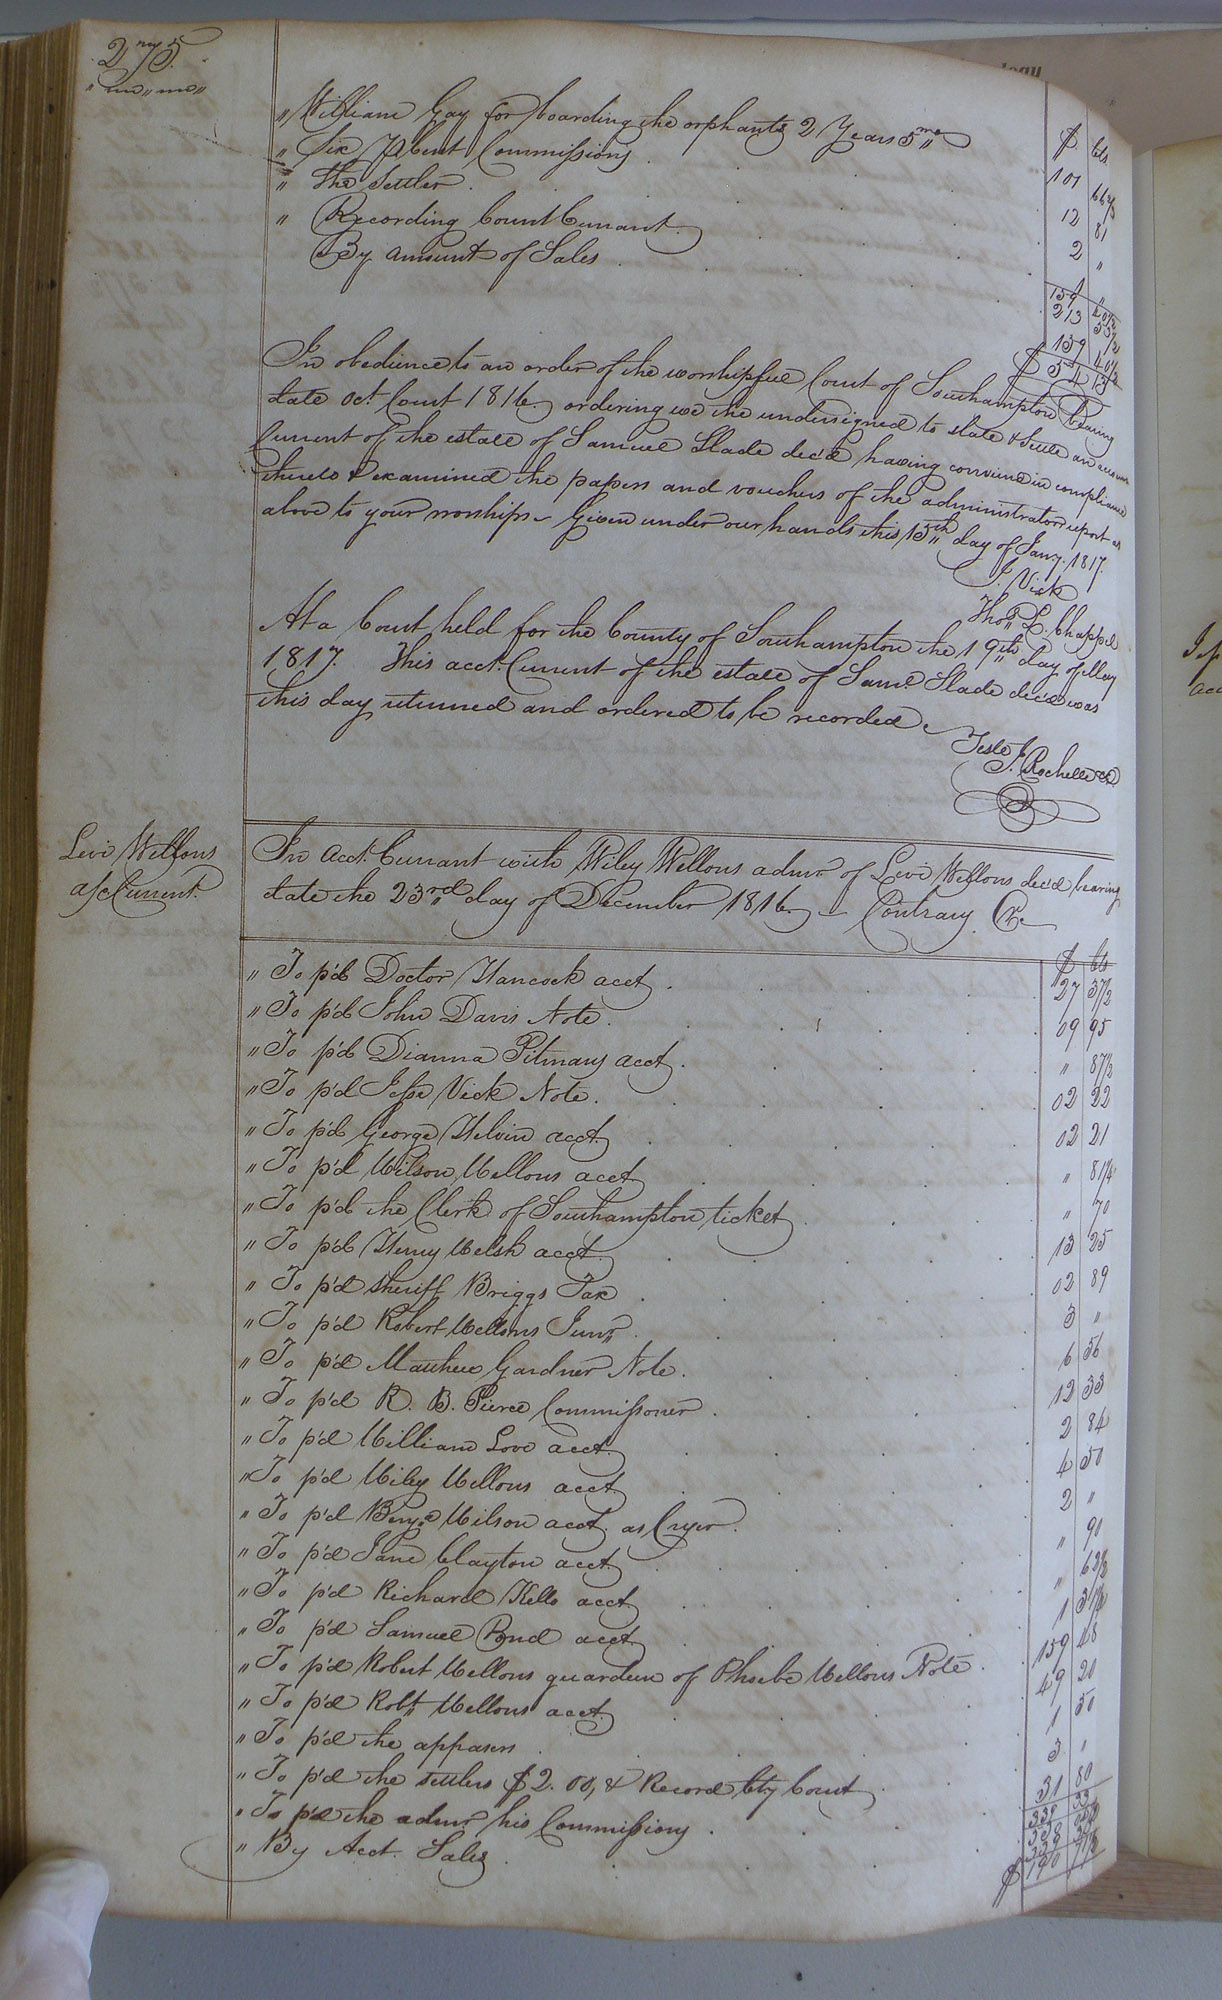 275
" William Gay for boarding the orphants 2 Years 5 mo
$ Cts
" Six P Cent Commissions
101 66 2/3
" The Settler
12 81
" Recording Count Currant
2 "
By amount of Sales
1 "
213
139
$ 54 13
In obedience to an order of the worshipfull Court of Southampton bearing
date Oct. Court 1816. ordering we the undersigned to state & Settle an account
Current of the estate of Samuel Slade dec'd having convened in compliance
thereto & examined the papers and vouchers of the administrator report as
above to your worships – Given under our hands this 15th day of Jany. 1817.
J. Vick
Thos. L. Chappel
At a Court held for the County of Southampton the 19th day of May
1817. This acct. Current of the estate of Saml. Slade dec'd was
this day returned and ordered to be recorded
Teste
J. Rochelle CC
Levi Wellons
a/c Current.
In Acct. Currant with Wiley Wellons admr. of Levi Wellons dec'd bearing
date the 23rd day of December 1816 – Contrary Cr.
$ Cts
" To p'd Doctor Hancock acct. 27 37 1/2
" To p'd John Davis Note. 09 95
" To p'd Dianna Pitmans acct. " 87 1/2
" To p'd Jesse Vick Note. 02 22
" To p'd George Helvin acct. 02 21
" To p'd Wilson Wellons acct. " 81 1/4
" To p'd the Clerk of Southampton ticket " 70
" To p'd Henry Welsh acct. 13 25
" To p'd Sheriff Briggs Tax 02 89
" To p'd Robert Wellons Junr. 3 "
" To p'd Matthew Gardner Note. 6 56
" To p'd R. B. Pierce Commissoner 12 33
" To p'd William Love acct. 2 84
" To p'd Wiley Wellons acct. 4 50
" To p'd Benja. Wilson acct. as Cryer. 2 "
" To p'd Jane Clayton acct. " 90
" To p'd Richard Kello acct. " 62 1/2
" To p'd Samuel Pond acct. 1 31 1/4
" To p'd Robert Wellons guardein of Phoebe Wellons Note 159 48
" To p'd Robt. Wellons acct. 49 20
" To p'd the apprasers 1 50
" To p'd the settlers $2.00, & Record Cty Court 3 "
" To p'd the admr. his Commissions 31 80
" By Acct. Sales
339 33
$ 190